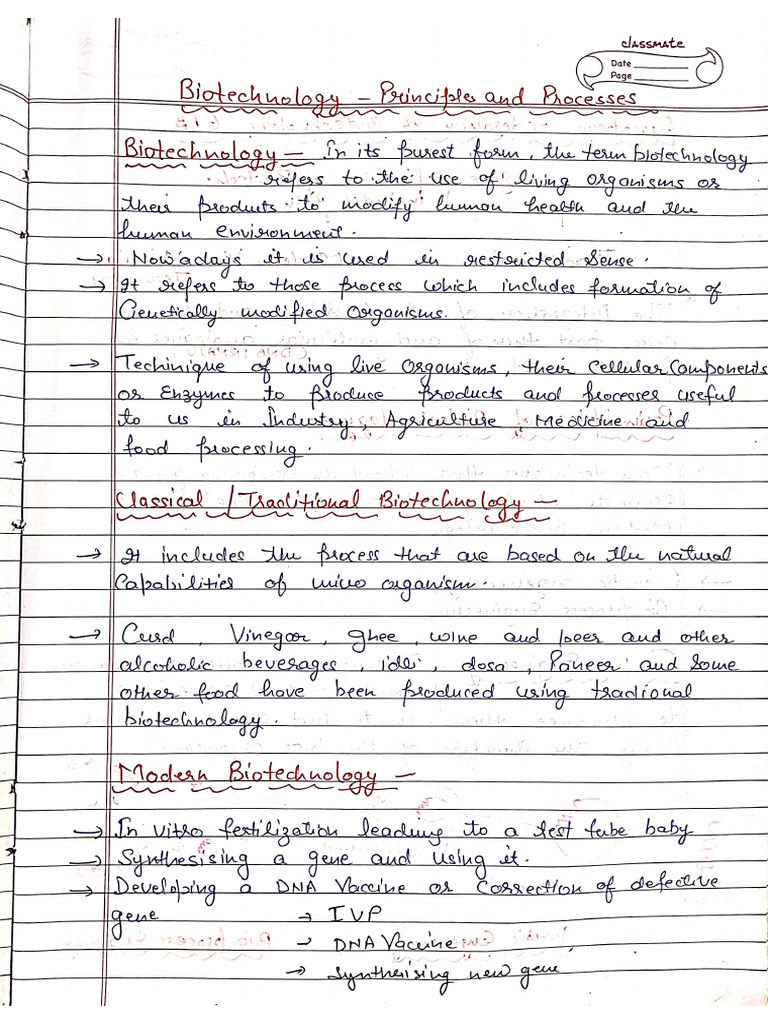 classmate
Date
Page
Biotechnology - Principles and Processes
Biotechnology - In its purest form, the term biotechnology
refers to the use of living organisms or
their products to modify human health and the
human environment.
→ Nowadays it is used in restricted sense.
→ It refers to those process which includes formation of
Genetically modified Organisms.
→ Techinique of using live Organisms, their Cellular Components
or Enzymes to produce products and processes useful
to us in Industry, Agriculture, Medicine and
food processing.
Classical / Traditional Biotechnology -
→ It includes the process that are based on the natural
Capabilities of micro organism.
→ Curd, Vinegar, ghee, wine and beer and other
alcoholic beverages, idli, dosa, Paneer and Some
other food have been produced using tradional
biotechnology.
Modern Biotechnology -
→ In vitro fertilization leading to a test tube baby
→ Synthesising a gene and using it.
→ Developing a DNA Vaccine or Correction of defective
gene → IVP
→ DNA Vaccine
→ Synthesising new gene